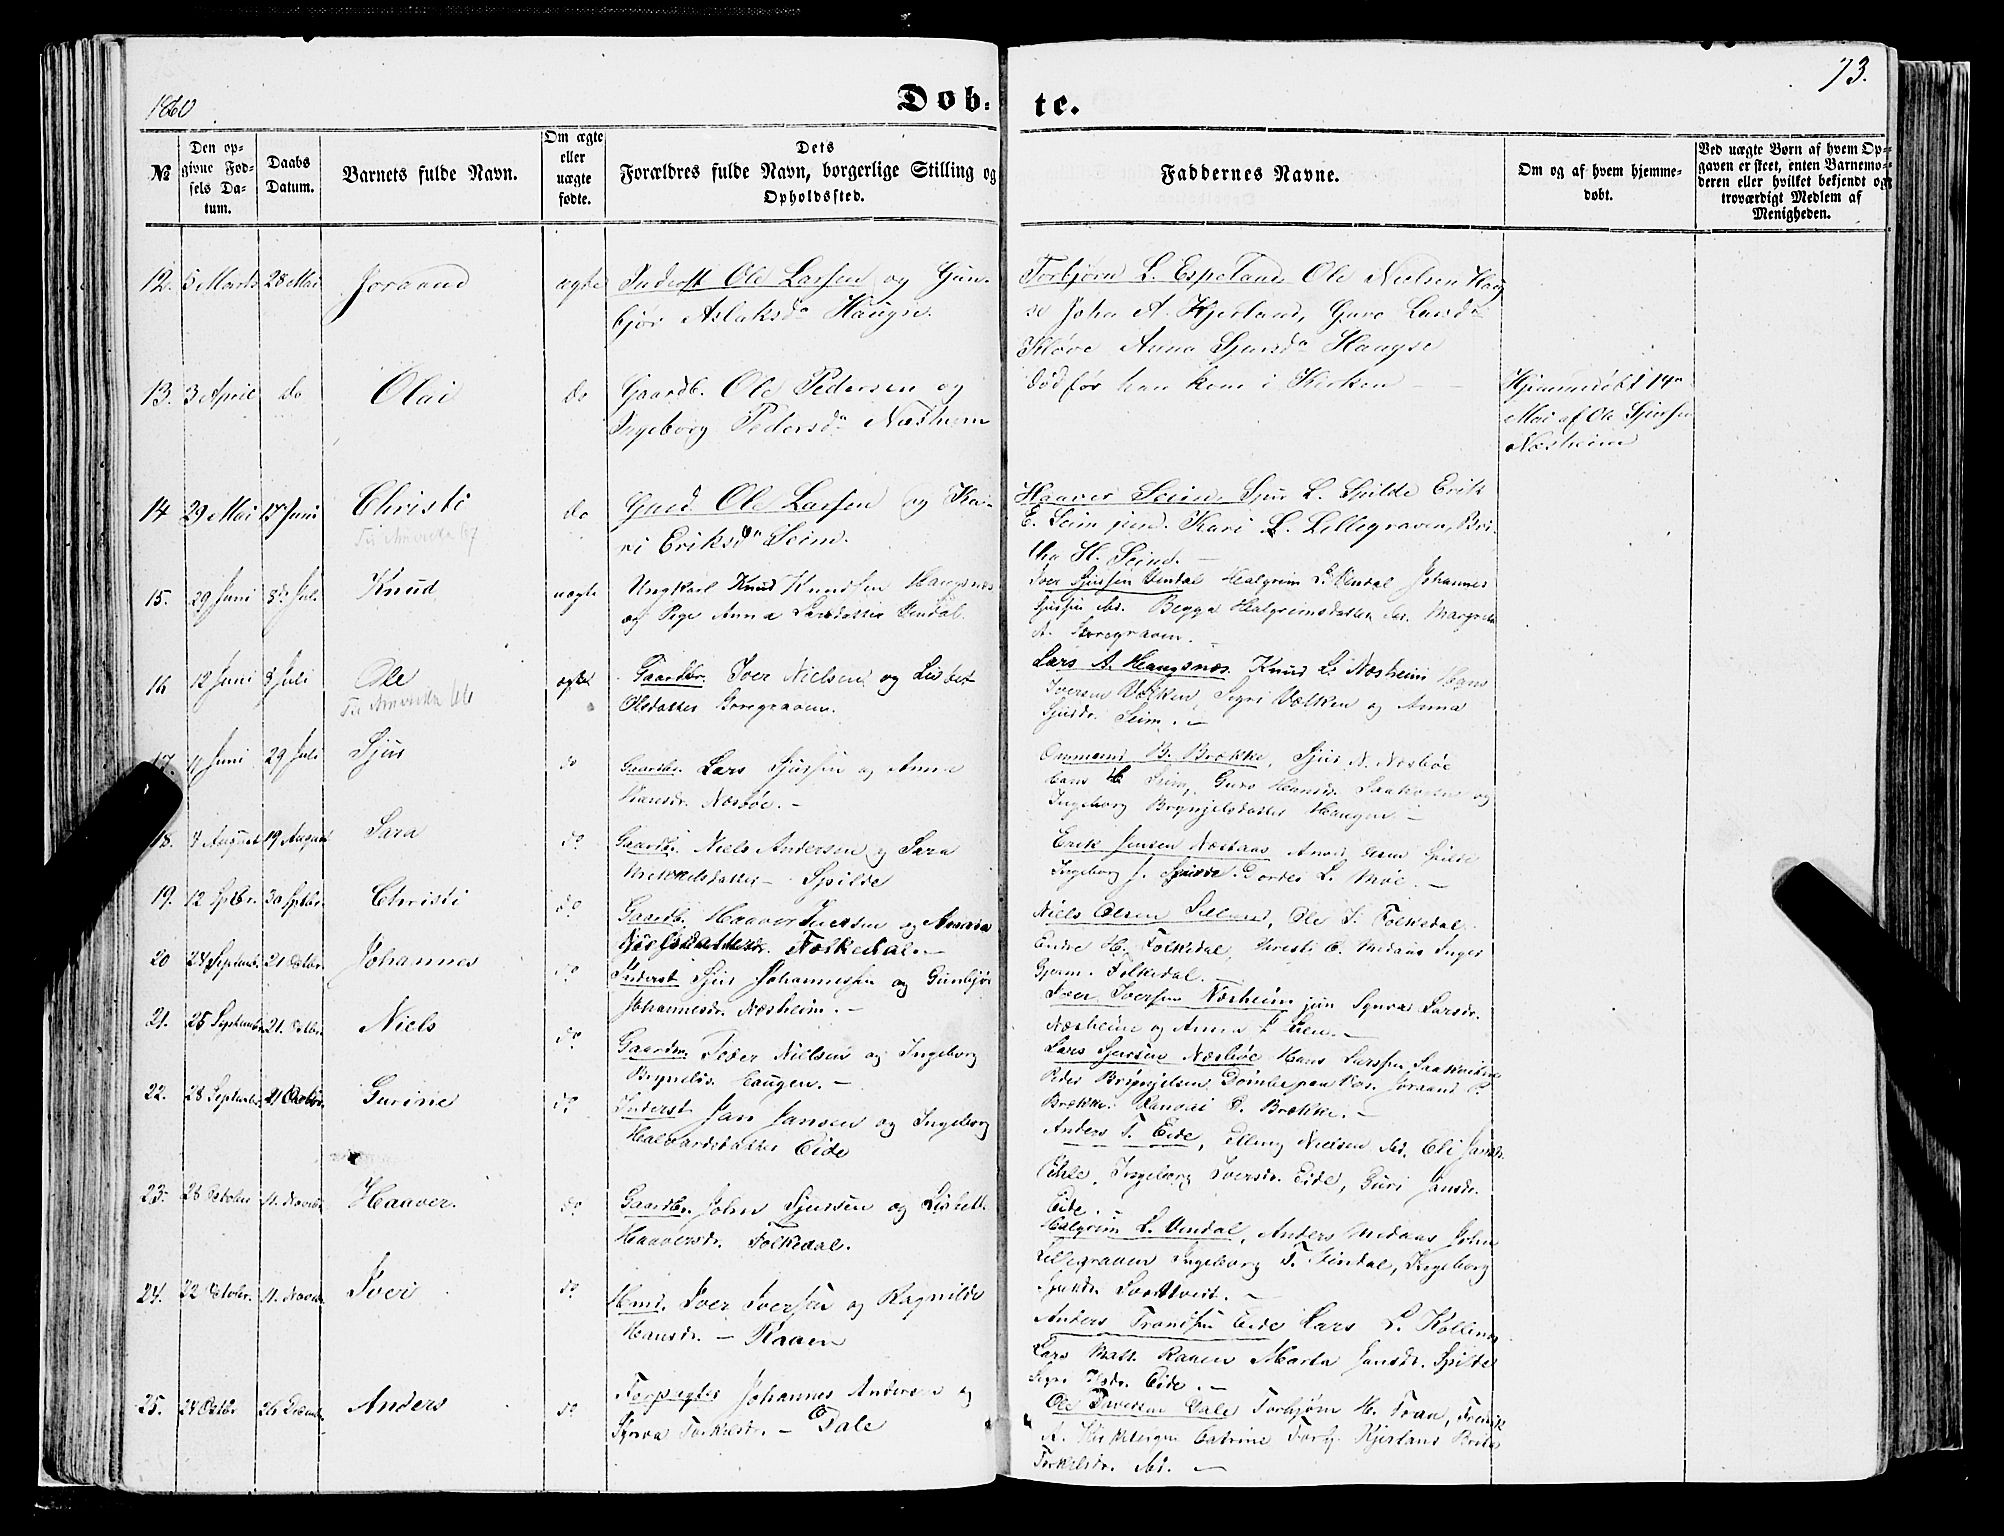 1860
Døb- te.
73.
№
Den opgivne Fødsels Datum.
Daabs Datum.
Barnets fulde Navn.
Om ægte eller uægte fødte.
Dets Forældres fulde Navn, borgerlige Stilling og Opholdssted.
Faddernes Navne.
Om og af hvem hjemmedøbt.
Ved uægte Børn af hvem Opgaven er skeet, enten Barnemoderen eller hvilket bekjendt og troværdigt Medlem af Menigheden.
12. 5 Marts 28 Mai Joraand ægte Inderst Ole Larsen og Gun-
bjør Aslaksd Haugse.
Torbjørn L. Espeland, Ole Nielsen Haug
se John A. Hjerland, Guro Larsd
Kløve Anna Sjursd Haugse
13. 3 April do Olai do Gaardb. Ole Pedersen og
Ingeborg Pedersd Næsheim
Død før han kom i Kirken
Hjemmedøbt 14
Mai af Ole Sjursen
Næsheim
14 29 Mai 17 Juni Christi do Gaard Ole Larsen og Ka-
Til Amerika 67
ri Eriksd Seim.
Haaver Seim, Sjur L. Spilde Erik
E. Seim jun. Kari L. Lillegraven, Bri-
tha H. Seim.
15. 29 Juni 8 Juli Knud uægte Ungkarl Knud Knudsen Haugsnæs
og Pige Anna Larsdatter Vendal.
Iver Sjursen Vendal Halgrim L. Vendal Johannes
Sjursen ibd. Begga Halgrimsdatter ibd. Margreta
A. Storegraven.
16 12 Juni 8 Juli Ole ægte Gaardbr. Iver Nielsen og Lisbet
Til Amerika 66
Olsdatter Storegraven.
Lars A. Haugsnæs. Knud L. Næsheim Hans
Iversen Vælken, Sigri Vælken og Anna
Sjursdr. Seim.
17. 4 Juni 29 Juli Sjur do Gaardbr. Lars Sjursen og Anna
Hansdr. Næsbøe.
B. Brække, Sjur N. Næsbøe
Hans H Seim, Guro Hansdr. og
Ingeborg Brynjelsdatter Haugen.
18. 7 August 19 August Sara do Gaardbr. Niels Andersen og Sara
Mikkelsdatter Spilde
Erik Jensen Næsaas Spilde
Ingeborg J. Spilde. Dordei L. Møe.
19. 12 Sptbr. 30 Sptbr. Christi do Gaardb. Haaver Iversen og Anna
Nielsdatter. Folkedal.
Niels Olsen Lilland, Ole I. Folkedal
Endre H. Folkedal, Kristi O. Medaas Inger
Gjerm. Folkedal.
20 24 Septemb. 21 Octbr. Johannes do Inderst Sjur Johannessen og Gunbjør
Johannesdr. Næsheim.
Iver Iversen Næsheim jun Synva Larsdr.
Næsheim og Anna
21. 25 Septembr. 21. Octbr. Niels do Gaardbr. Peder Nielsen og Ingeborg
Brynelsd. Haugen.
Lars Sjursen Næsbøe Hans Larsen
Peder Brynjelsen Dømbe paa Vos. Joraand P.
Brække. Ranvei B. Brække.
22. 28 Septembr. 21 Octbr. Gurine do Inderst. Jan Jansen og Ingeborg
Halvardsdatter Eide
Anders T. Eide, Elling Nielsen ibd. Oli Jansdr.
Ingeborg Iversdr. Eide, Guri Jansdr.
Eide.
23. 26 October 11. Novbr. Haaver. do Gaardbr. John Sjursen og Lisbeth
Haaversdr. Folkedal.
Halgrim L. Vendal, Anders Medaas John
Lillegraven Ingeborg T. Vendal, Ingeborg
24. 22 Octobr. 11. Novbr. Iver do Hmd. Iver Iversen og Ragnilde
Hansdr. Raaen
Anders Trondsen Eide Lars L. Kollenæs
Lars Raaen Marta Jansdr. Spilde
Eide.
25. 24 Octbr. 26 Decembr. Anders do Forpagter Johannes Andersen og
Synva Torkelsdr. Dale
Ole Dale Torbjørn H. Tran,
A. Catrine Torbj. Kjerland Brita
Torkelsdr. ibd.